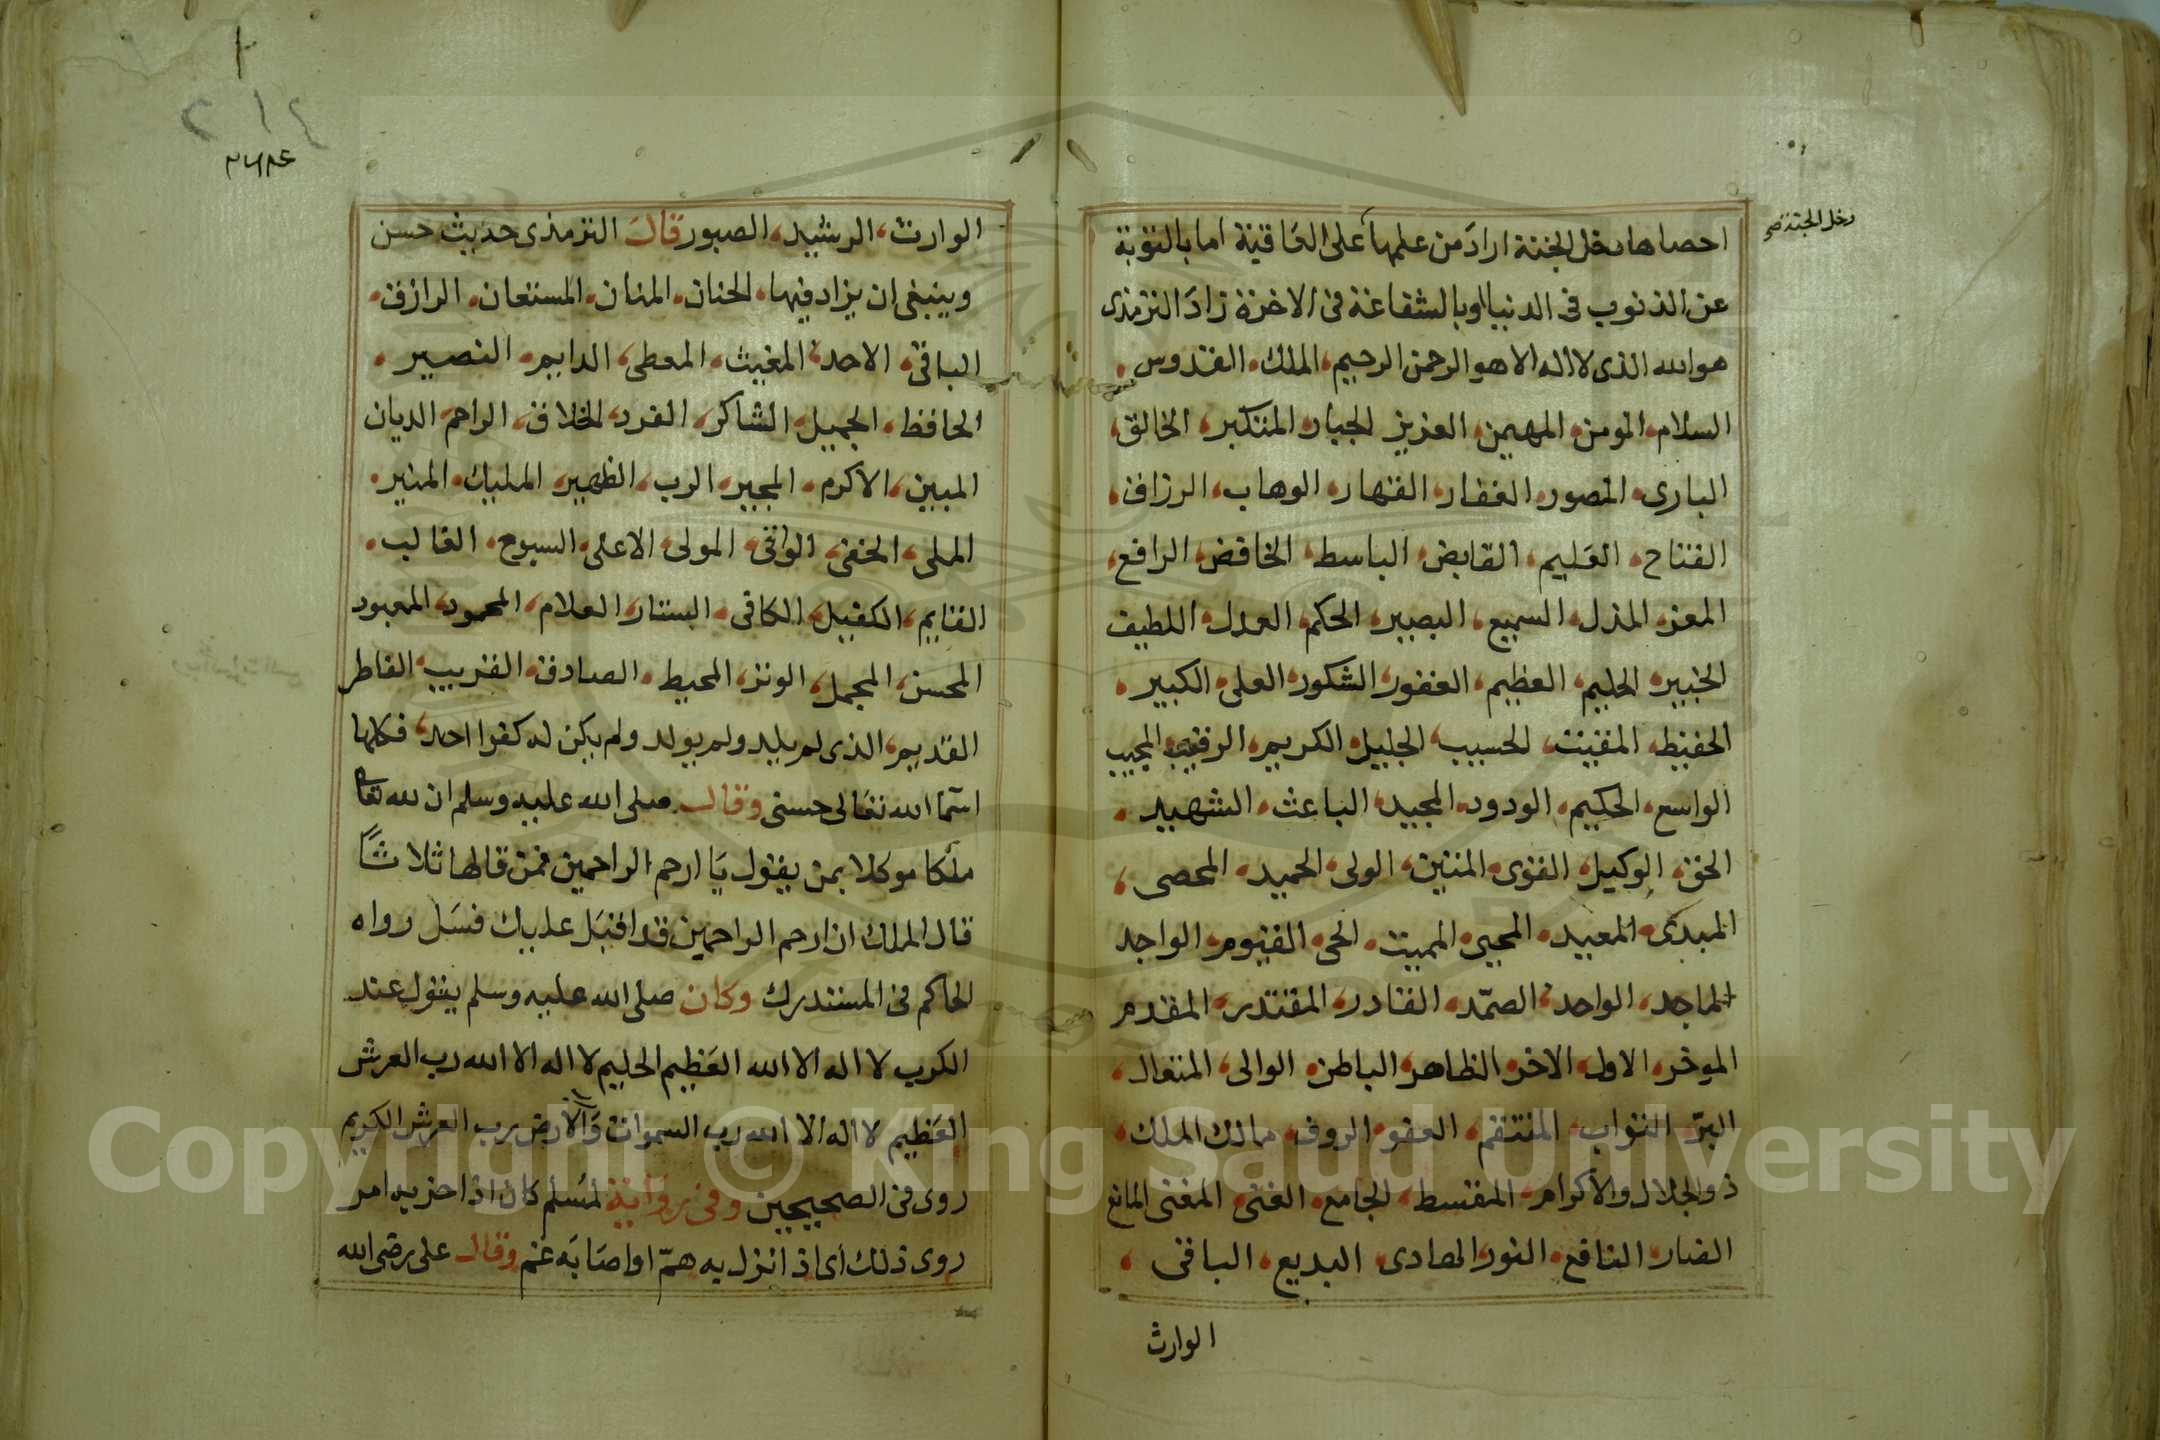 احصاها دخل الجنة اراد من علمها على العاقبة اما بالتوبة
دخل الجنة صح
عن الذنوب فى الدنيا او بالشفاعة فى الاخرة زاد الترمذى
هو الله الذى لا اله الا هو الرحمن الرحيم الملك القدوس
السلام المومن المهيمن العزيز الجبار المتكبر الخالق
البارى المصور الغفار القهار الوهاب الرزاق
الفتاح العليم القابض الباسط الخافض الرافع
المعز المذل السميع البصير الحكم العدل اللطيف
الخبير الحليم العظيم الغفور الشكور العلى الكبير
الحفيظ المقيت الحسيب الجليل الكريم الرقيب المجيب
الواسع الحكيم الودود المجيد الباعث الشهيد
الحق الوكيل القوى المتين الولى الحميد المحصى
المبدى المعيد المحيى المميت الحى القيوم الواجد
الماجد الواحد الصمد القادر المقتدر المقدم
الموخر الاول الاخر الظاهر الباطن الوالى المتعال
البر التواب المنتقم العفو الروف مالك الملك
ذو الجلال والاكرام المقسط الجامع الغنى المغنى المانع
الضار النافع النور الهادى البديع الباقى
الوارث
٢٦٨٤
الوارث الرشيد الصبور قال الترمذى حديث حسن
وينبغى ان يزاد فيها الحنان المنان المستعان الرازق
الباقى الاحد المغيث المعطى الدايم النصير
الحافظ الجميل الشاكر الفرد الخلاق الراحم الديان
المبين الاكرم المجير الرب الظهير المليك المنير
الملى الخفى الواقى المولى الاعلى السبوح الغالب
القايم الكفيل الكافى الستار العلام المحمود المعبود
المحسن المجمل الوتر المحيط الصادق القريب الفاطر
القديم الذى لم يلد ولم يولد ولم يكن له كفوا احد فكلها
اسما الله تعالى حسنى وقال صلى الله عليه وسلم ان لله تعا
ملكا موكلا بمن يقول يا ارحم الراحمين فمن قالها ثلاثا
قال الملك ان ارحم الراحمين قد اقبل عليك فسل رواه
الحاكم فى المستدرك وكان صلى الله عليه وسلم يقول عند
الكرب لا اله الا الله العظيم الحليم لا اله الا الله رب العرش
العظيم لا اله الا الله رب السموات والارض رب العرش الكريم
روى فى الصحيحين وفى رواية لمسلم كان اذا حزبه امر
روى ذلك اى اذا نزل به هم او اصابه غم وقال على رضى الله
Copyright © King Saud University